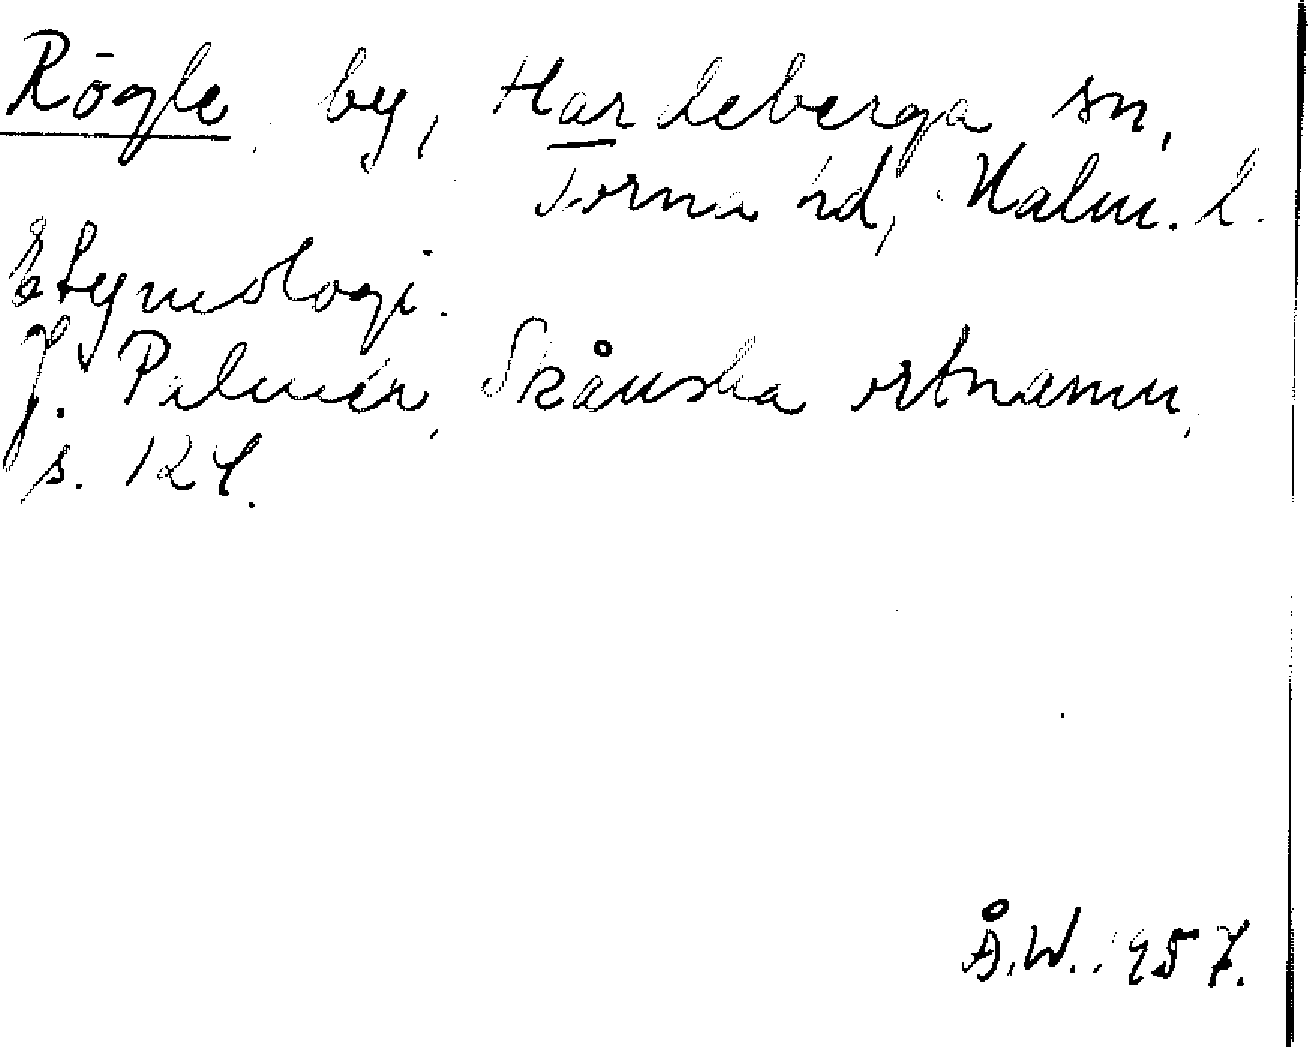 Rögle by, Hardeberga sn,
Torna hd, Malm. l.
Etymologi.
J. Palmér, Skånska ortnamn,
s. 124.
Å.W. 1957.